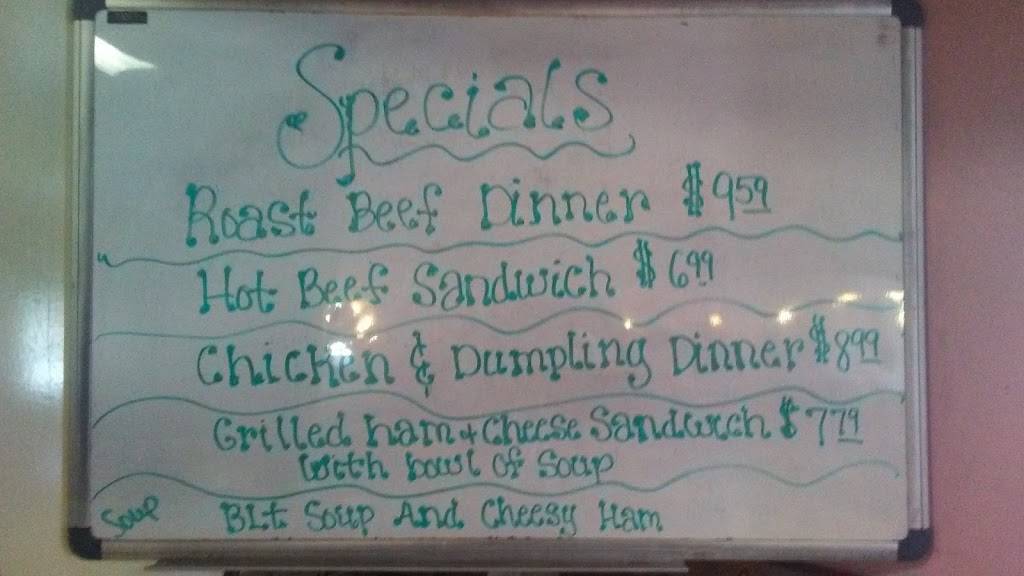 Specials
Roast Beef Dinner $9.59
Hot Beef Sandwich $6.99
Chicken & Dumpling Dinner $8.99
Grilled ham + cheese Sandwich $7.79
with bowl of Soup
Soup BLt Soup And Cheesy Ham